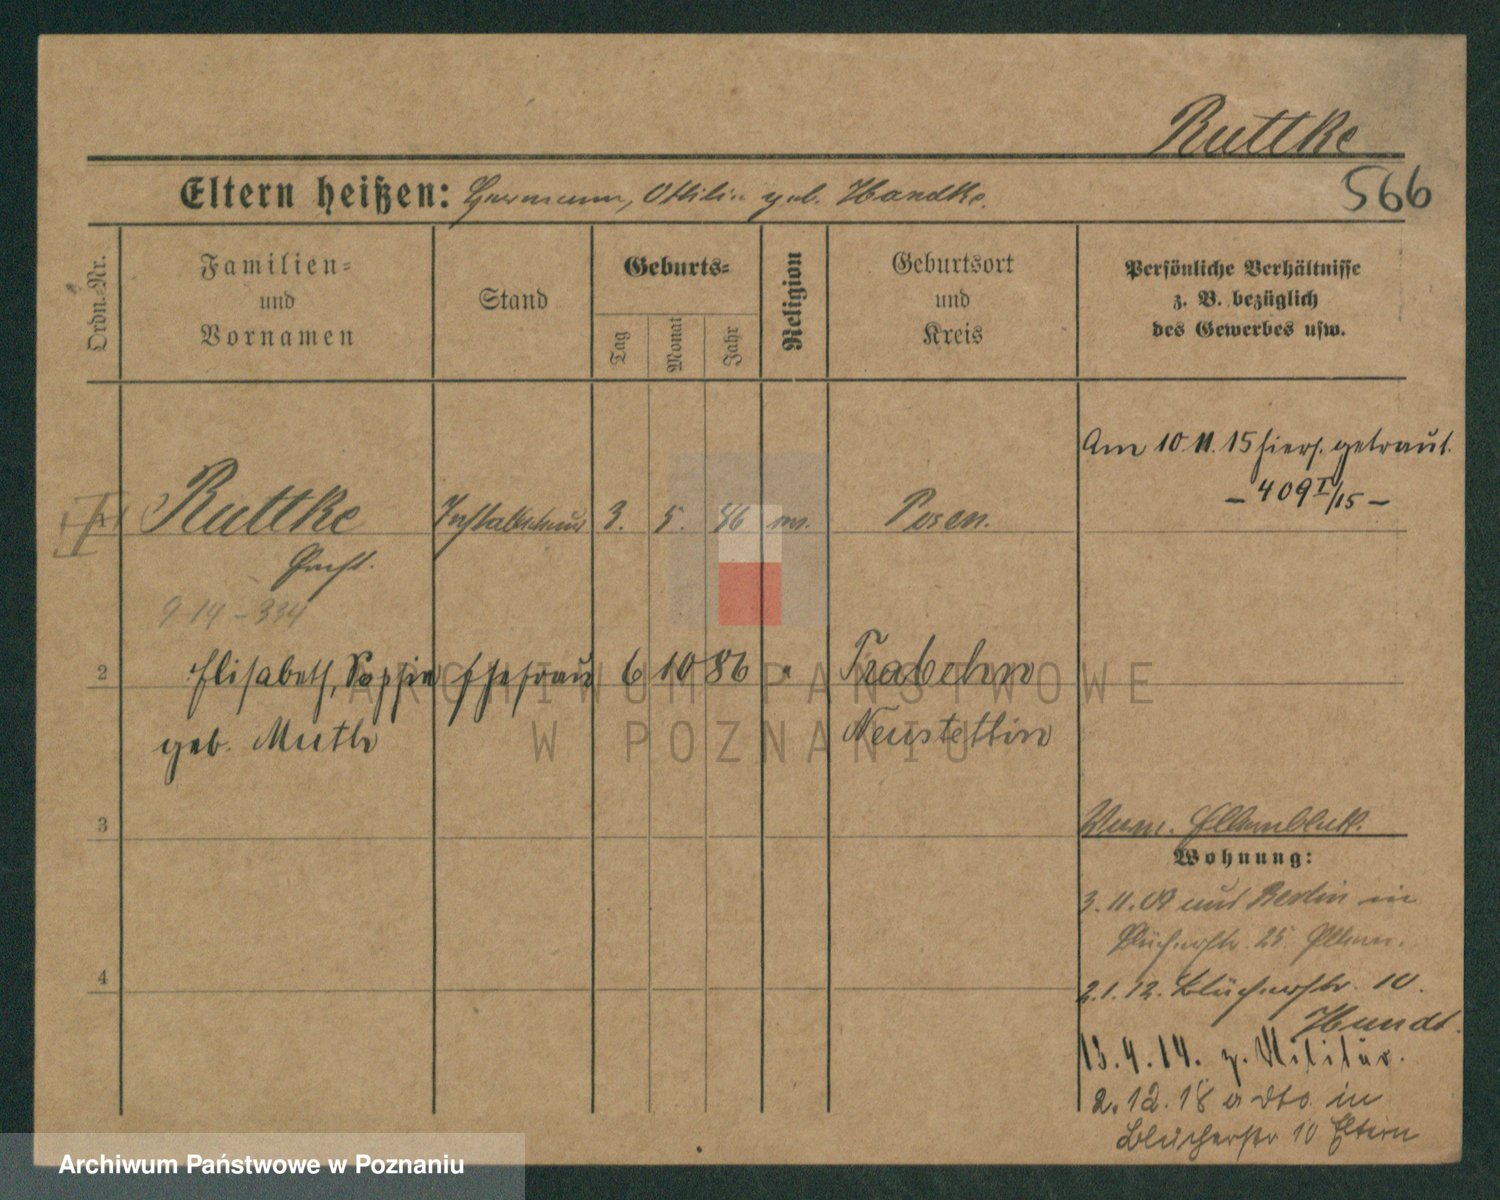 Ruttke
566
Eltern heißen: Hermann, Ottilie geb. Handke.
Ordn.-Nr.
Familien-
und
Vornamen
Stand
Geburts-
Tag
Monat
Jahr
Religion
Geburtsort
und
Kreis
Persönliche Verhältnisse
z. B. bezüglich
des Gewerbes usw.
Am 10 11. 15 hiers. getraut.
- 409 I/15 -
Ruttke 3. 5. 86 Posen.
9 14 - 334
2 Elisabeth, Sophie Ehefrau 6 10 86 " Trabehn
geb. Muth Neustettin
3
Wohnung:
3. 11. 09 aus Berlin in
25 Eltern.
4
2. 1. 12. Blücherstr. 10.
Hundt.
13. 9. 14. z. Militär.
2. 12. 18 a dto in
Blücherstr 10 Eltern
ARCHIWUM PAŃSTWOWE
W POZNANIU
Archiwum Państwowe w Poznaniu